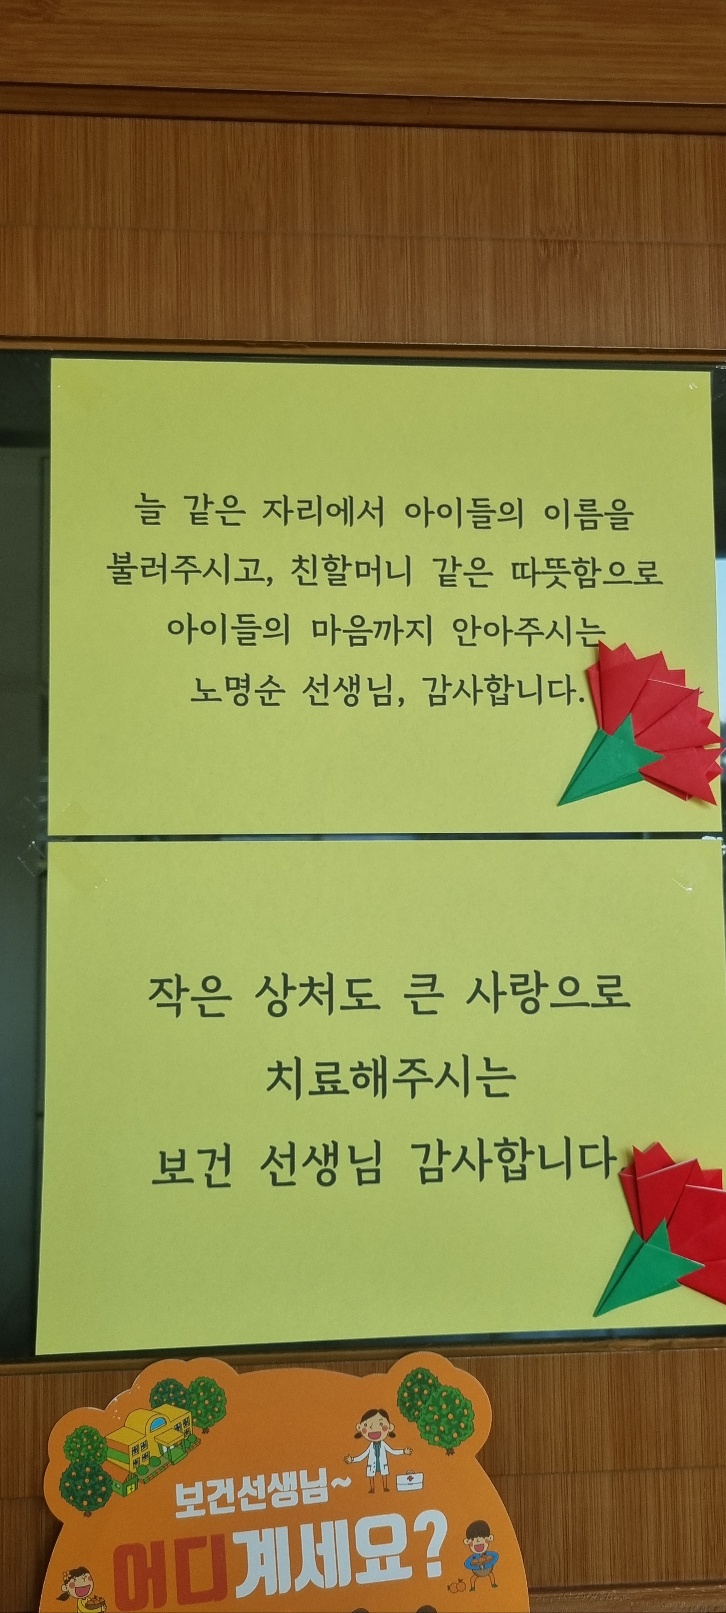 늘 같은 자리에서 아이들의 이름을
불러주시고, 친할머니 같은 따뜻함으로
아이들의 마음까지 안아주시는
노명순 선생님, 감사합니다.
작은 상처도 큰 사랑으로
치료해주시는
보건 선생님 감사합니다.
보건선생님~
어디계세요?